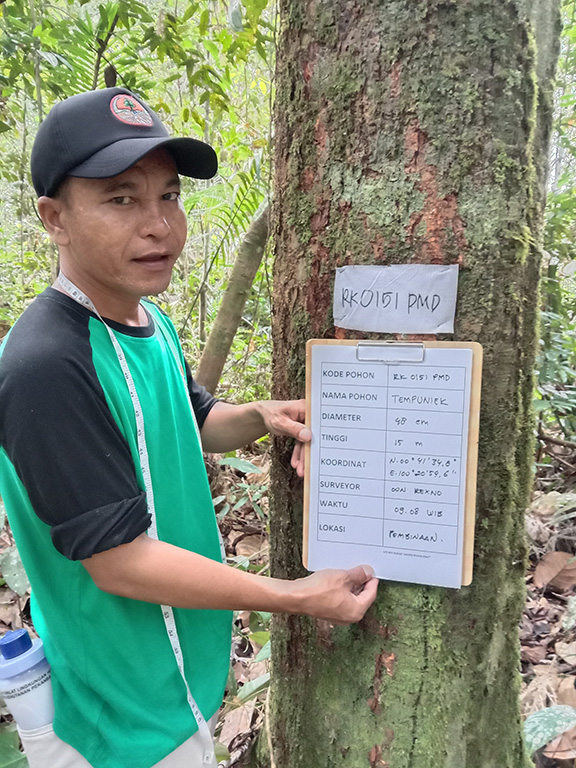 RK0151 PMD
KODE POHON RK 0151 PMD
NAMA POHON TEMPUNIEK
DIAMETER 48 cm
TINGGI 15 m
KOORDINAT N.00° 41' 34,8"
E.100° 20' 59,6"
SURVEYOR
WAKTU 09.08 WIB
LOKASI PEMBINAAN.